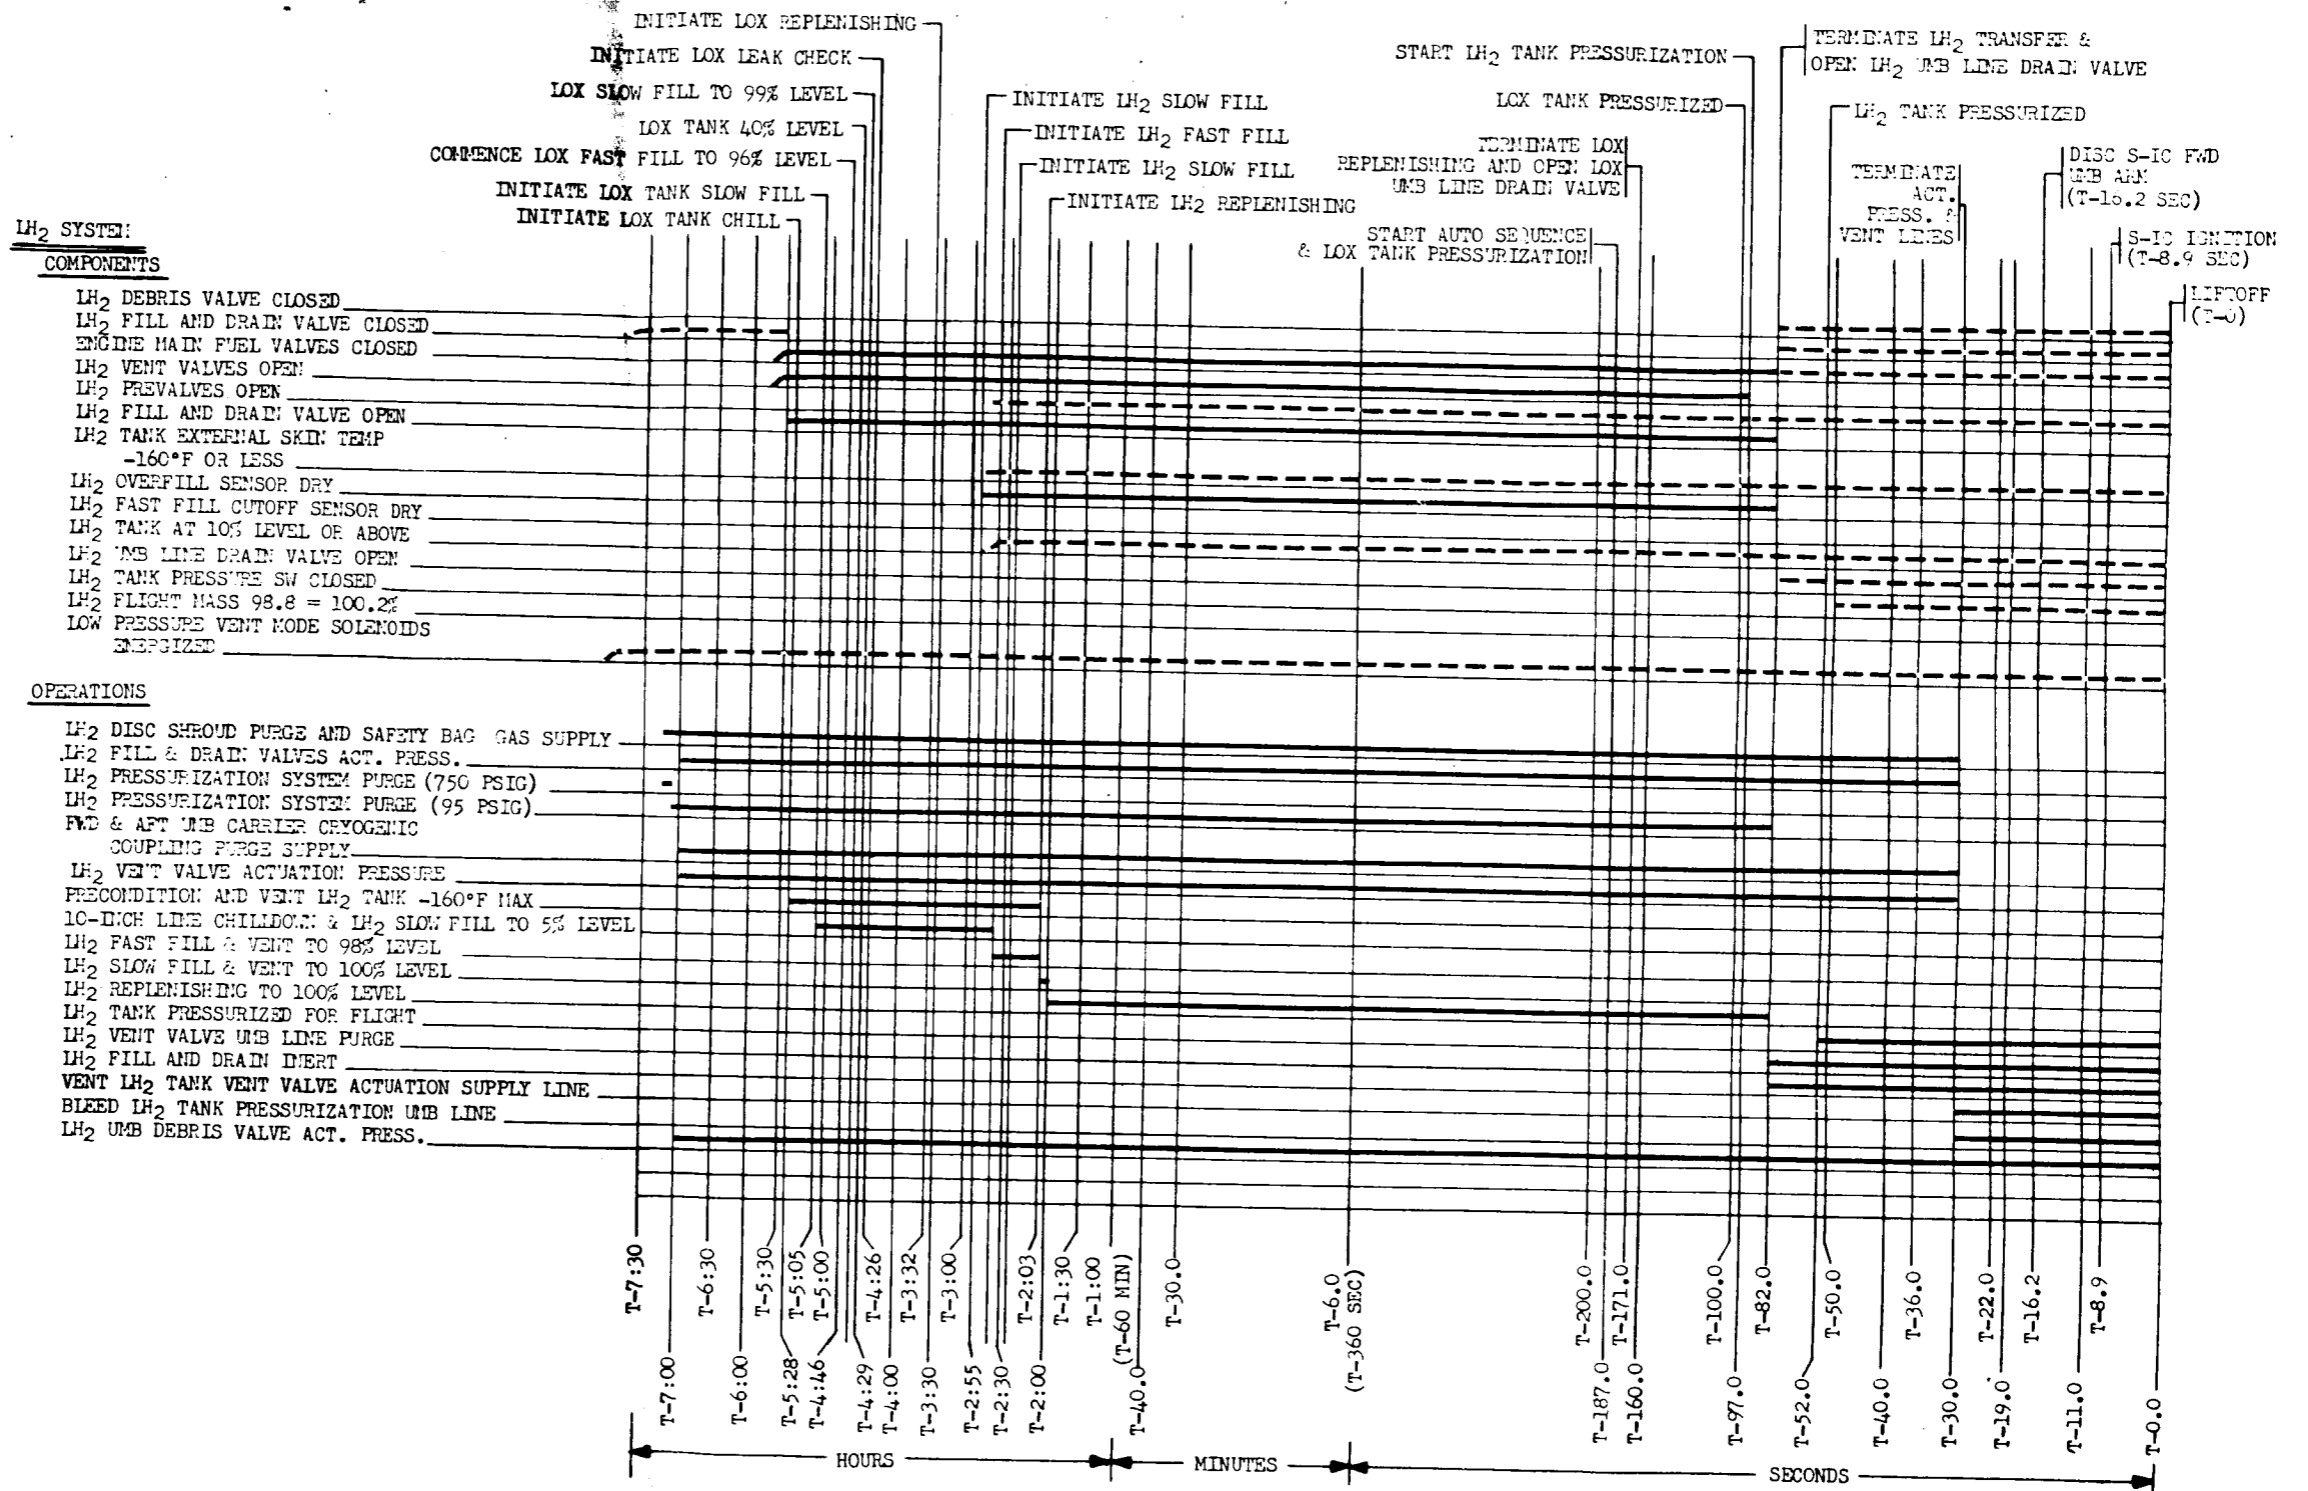 INITIATE LOX REPLENISHING
INITIATE LOX LEAK CHECK
LOX SLOW FILL TO 99% LEVEL
LOX TANK 40% LEVEL
COMMENCE LOX FAST FILL TO 96% LEVEL
INITIATE LOX TANK SLOW FILL
INITIATE LOX TANK CHILL
INITIATE LH2 SLOW FILL
INITIATE LH2 FAST FILL
INITIATE LH2 SLOW FILL
INITIATE LH2 REPLENISHING
START LH2 TANK PRESSURIZATION
LOX TANK PRESSURIZED
TERMINATE LOX
REPLENISHING AND OPEN LOX
UMB LINE DRAIN VALVE
START AUTO SEQUENCE
& LOX TANK PRESSURIZATION
TERMINATE LH2 TRANSFER &
OPEN LH2 UMB LINE DRAIN VALVE
LH2 TANK PRESSURIZED
TERMINATE
ACT.
PRESS. &
VENT LINES
DISC S-IC FWD
UMB ARM
(T-16.2 SEC)
S-IC IGNITION
(T-8.9 SEC)
LIFTOFF
(T-0)
LH2 SYSTEM
COMPONENTS
LH2 DEBRIS VALVE CLOSED
LH2 FILL AND DRAIN VALVE CLOSED
ENGINE MAIN FUEL VALVES CLOSED
LH2 VENT VALVES OPEN
LH2 PREVALVES OPEN
LH2 FILL AND DRAIN VALVE OPEN
LH2 TANK EXTERNAL SKIN TEMP
-160°F OR LESS
LH2 OVERFILL SENSOR DRY
LH2 FAST FILL CUTOFF SENSOR DRY
LH2 TANK AT 10% LEVEL OR ABOVE
LH2 UMB LINE DRAIN VALVE OPEN
LH2 TANK PRESSURE SW CLOSED
LH2 FLIGHT MASS 98.8 = 100.2%
LOW PRESSURE VENT MODE SOLENOIDS
ENERGIZED
OPERATIONS
LH2 DISC SHROUD PURGE AND SAFETY BAG GAS SUPPLY
LH2 FILL & DRAIN VALVES ACT. PRESS.
LH2 PRESSURIZATION SYSTEM PURGE (750 PSIG)
LH2 PRESSURIZATION SYSTEM PURGE (95 PSIG)
FWD & AFT UMB CARRIER CRYOGENIC
COUPLING PURGE SUPPLY
LH2 VENT VALVE ACTUATION PRESSURE
PRECONDITION AND VENT LH2 TANK -160°F MAX
10-INCH LINE CHILLDOWN & LH2 SLOW FILL TO 5% LEVEL
LH2 FAST FILL & VENT TO 98% LEVEL
LH2 SLOW FILL & VENT TO 100% LEVEL
LH2 REPLENISHING TO 100% LEVEL
LH2 TANK PRESSURIZED FOR FLIGHT
LH2 VENT VALVE UMB LINE PURGE
LH2 FILL AND DRAIN INERT
VENT LH2 TANK VENT VALVE ACTUATION SUPPLY LINE
BLEED LH2 TANK PRESSURIZATION UMB LINE
LH2 UMB DEBRIS VALVE ACT. PRESS.
T-7:30
T-7:00
T-6:30
T-6:00
T-5:30
T-5:28
T-5:05
T-4:46
T-5:00
T-4:29
T-4:26
T-4:00
T-3:32
T-3:30
T-3:00
T-2:55
T-2:30
T-2:03
T-2:00
T-1:30
T-1:00
(T-60 MIN)
T-40.0
T-30.0
T-6.0
(T-360 SEC)
T-200.0
T-187.0
T-171.0
T-160.0
T-100.0
T-97.0
T-82.0
T-52.0
T-50.0
T-40.0
T-36.0
T-30.0
T-22.0
T-19.0
T-16.2
T-11.0
T-8.9
T-0.0
HOURS
MINUTES
SECONDS